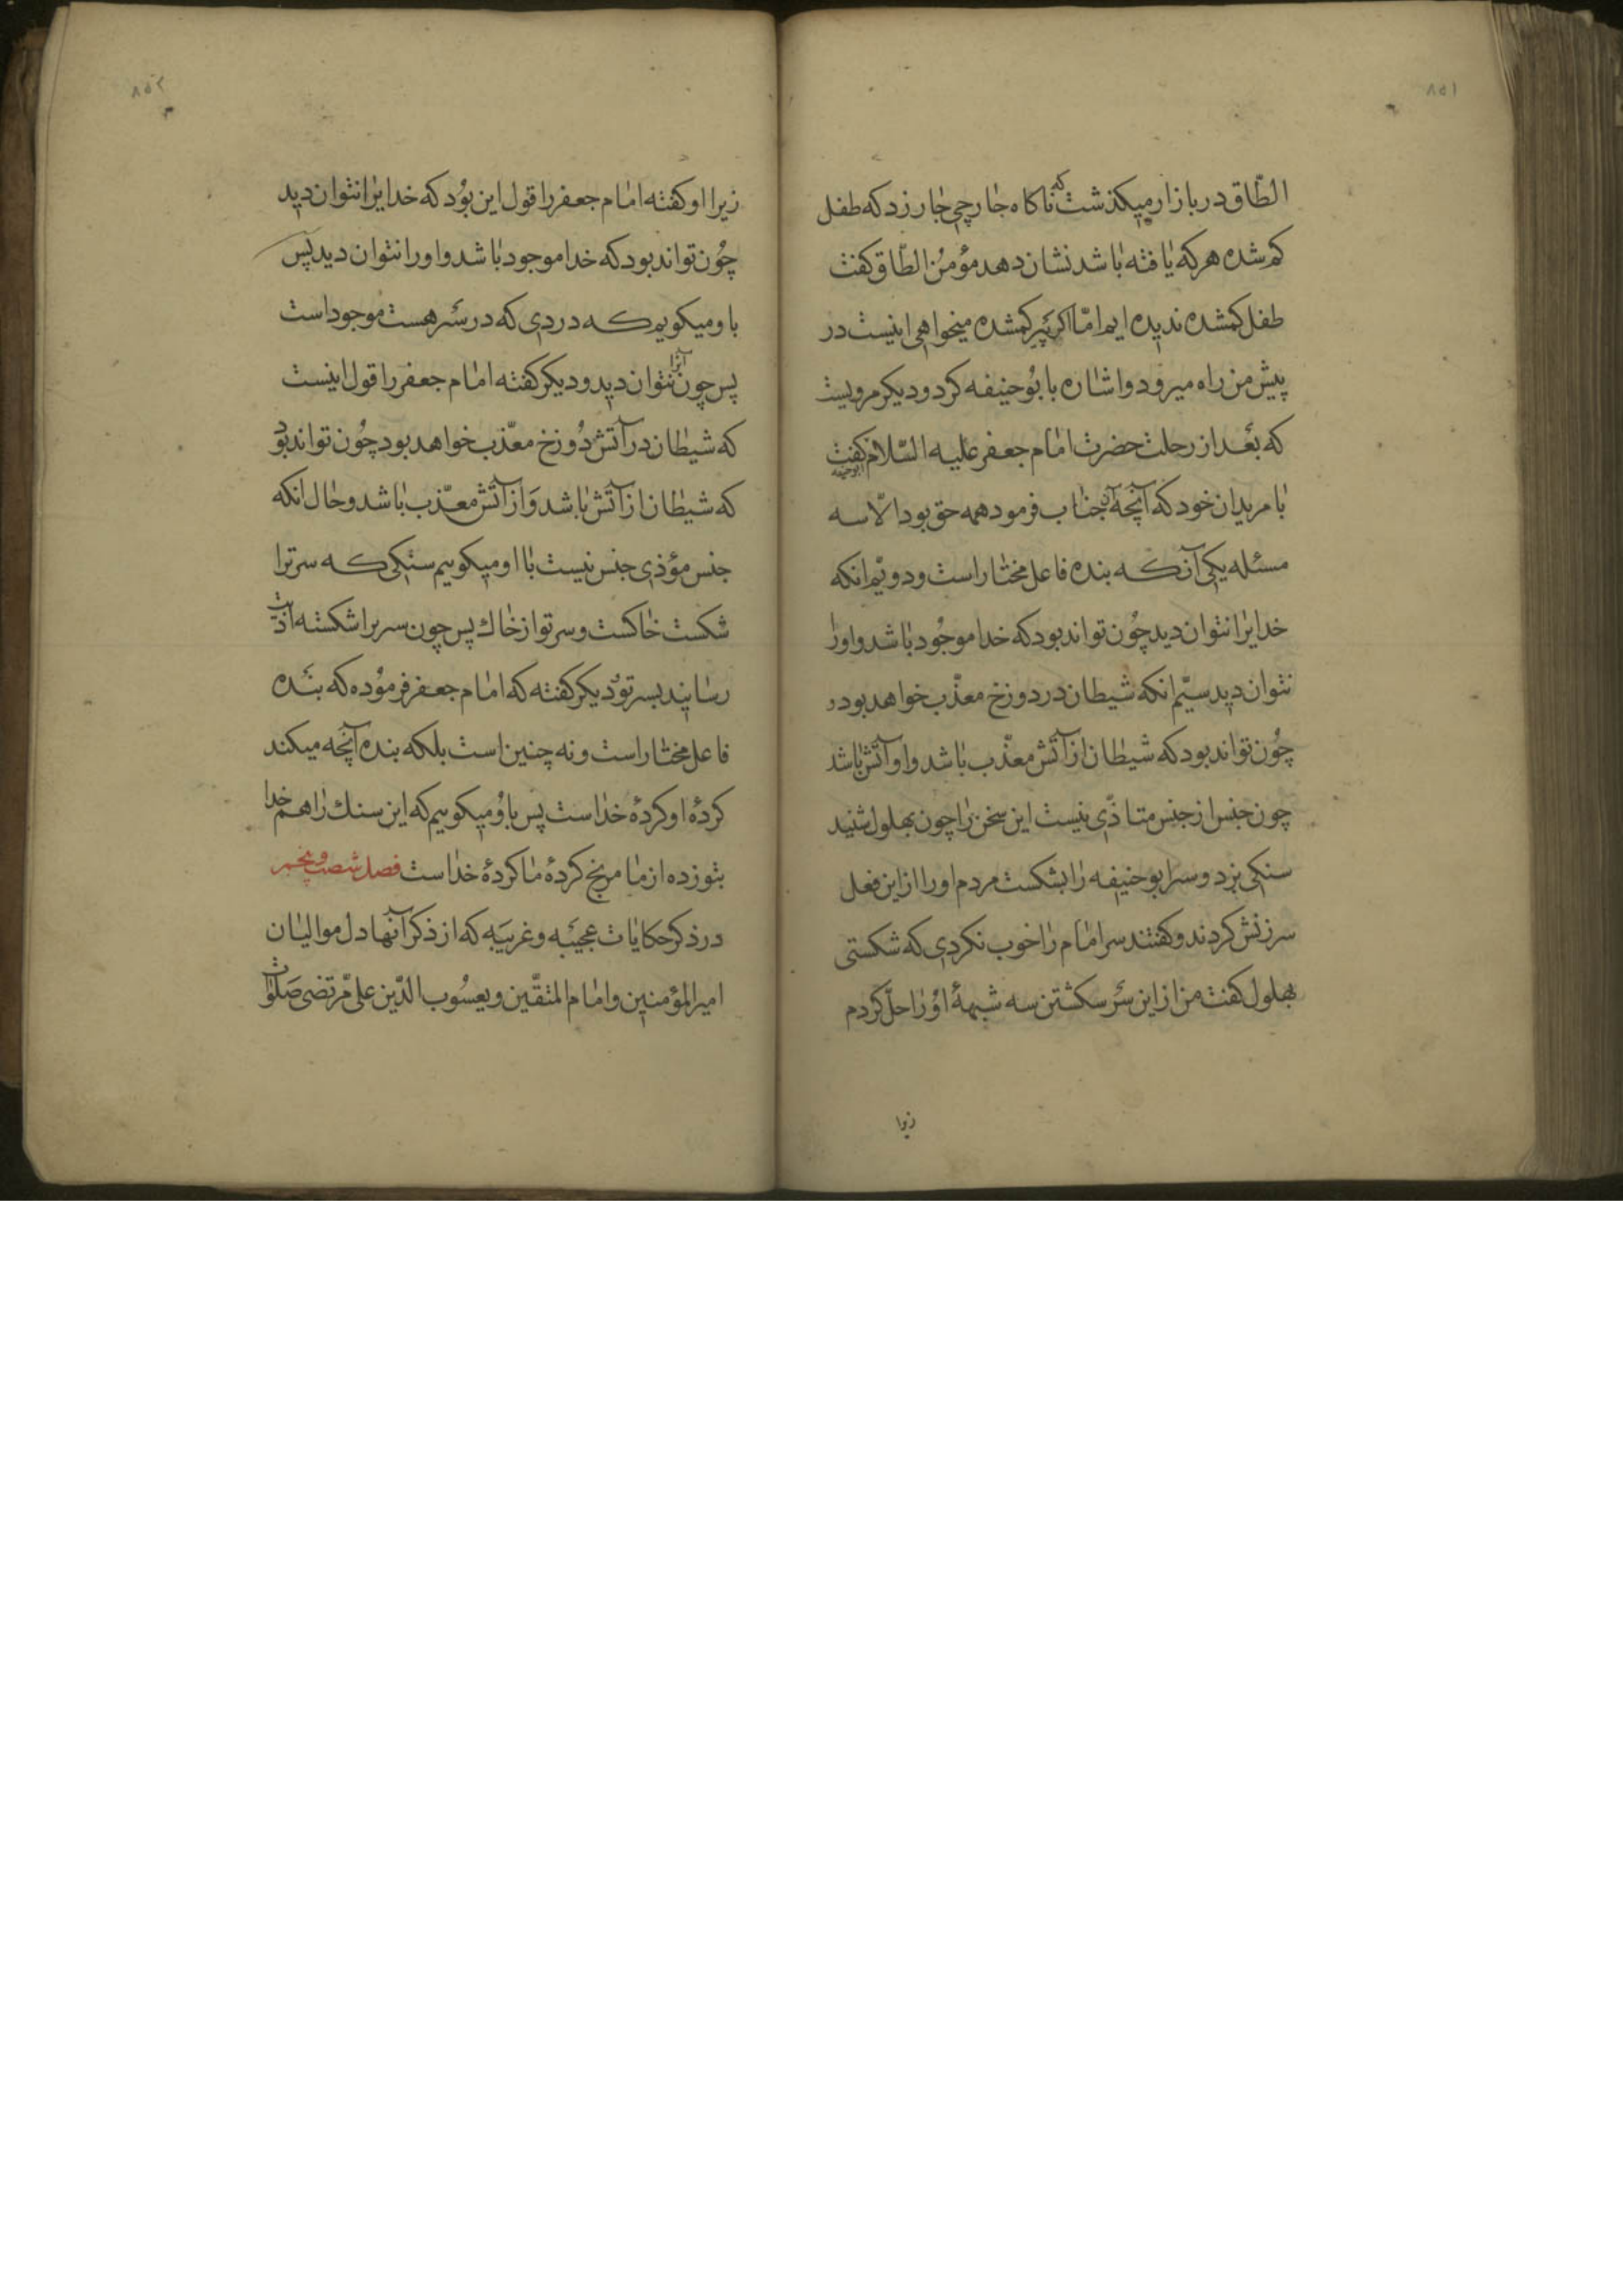 ۸۵۱
الطّاق در بازار میکذشت که ناکاه جارچی جار زد که طفل
کم شده هر که یافته باشد نشان دهد مؤمن الطّاق کفت
طفل کمشده ندیده ایم امّا اکر پیر کمشده میخواهی اینست در
پیش من راه میرود و اشاره بابو حنیفه کرد و دیکر مرویست
که بعد از رحلت حضرت امام جعفر علیه السّلام کفت ابوحنیفه
با مریدان خود که آنچه آنجناب فرمود همه حق بود الّا سه
مسئله یکی آنکه بنده فاعل مختار است و دویّم انکه
خدایرا نتوان دید چون تواند بود که خدا موجود باشد و اورا
نتوان دید سیّم انکه شیطان در دوزخ معذّب خواهد بود و
چون تواند بود که شیطان از آتش معذّب باشد و او آتش باشد
چون جنس از جنس متاذّی نیست این سخن را چون بهلول شنید
سنکی بزد و سر ابو حنیفه را بشکست مردم اورا از این فعل
سرزنش کردند و کفتند سر امام را خوب نکردی که شکستی
بهلول کفت من از این سر سکشتن سه شبههٔ او را حلّ کردم
زیرا
۸۵۲
زیرا او کفته امام جعفر را قول این بود که خدایرا نتوان دید
چون تواند بود که خدا موجود باشد و اورا نتوان دید پس
باو میکویم که دردی که در سر هست موجود است
پس چون آنرا نتوان دید و دیکر کفته امام جعفر را قول اینست
که شیطان در آتش دوزخ معذّب خواهد بود چون تواند بود
که شیطان از آتش باشد و از آتش معذّب باشد و حال انکه
جنس مؤذی جنس نیست با او میکوییم سنکی که سر ترا
شکست خاکست و سر تو از خاک پس چون سر برا شکسته اذیت
رسانید بسر تو و دیکر کفته که امام جعفر فرموده که بنده
فاعل مختار است و نه چنین است بلکه بنده آنچه میکند
کردهٔ او کردهٔ خداست پس باو میکوییم که این سنک را هم خدا
بتو زده از ما مرنج کردهٔ ما کردهٔ خداست فصل شصت و پنجم
در ذکر حکایات عجیبه و غریبه که از ذکر آنها دل موالیان
امیر المؤمنین و امام المتقّین و یعسوب الدّین علی مرتضی صلوات